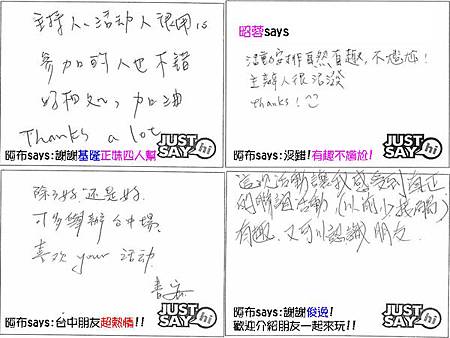 主持人、活動人很用心
參加的人也不錯
好相處,加油
Thanks a lot
JUST SAY hi
阿布says:謝謝基隆正妹四人幫
昭蓉says
活動安排自然有趣,不尷尬!
主辦人很活潑
thanks!
JUST SAY hi
阿布says:沒錯!有趣不尷尬!
除了好.還是好.
可多舉辦台中場.
喜歡 your 活動
JUST SAY hi
阿布says:台中朋友超熱情!!
這次活動讓我感受到真正
的聯誼活動(以前少接觸)
有趣.又可以認識朋友.
JUST SAY hi
阿布says:謝謝俊逸!
歡迎介紹朋友一起來玩!!